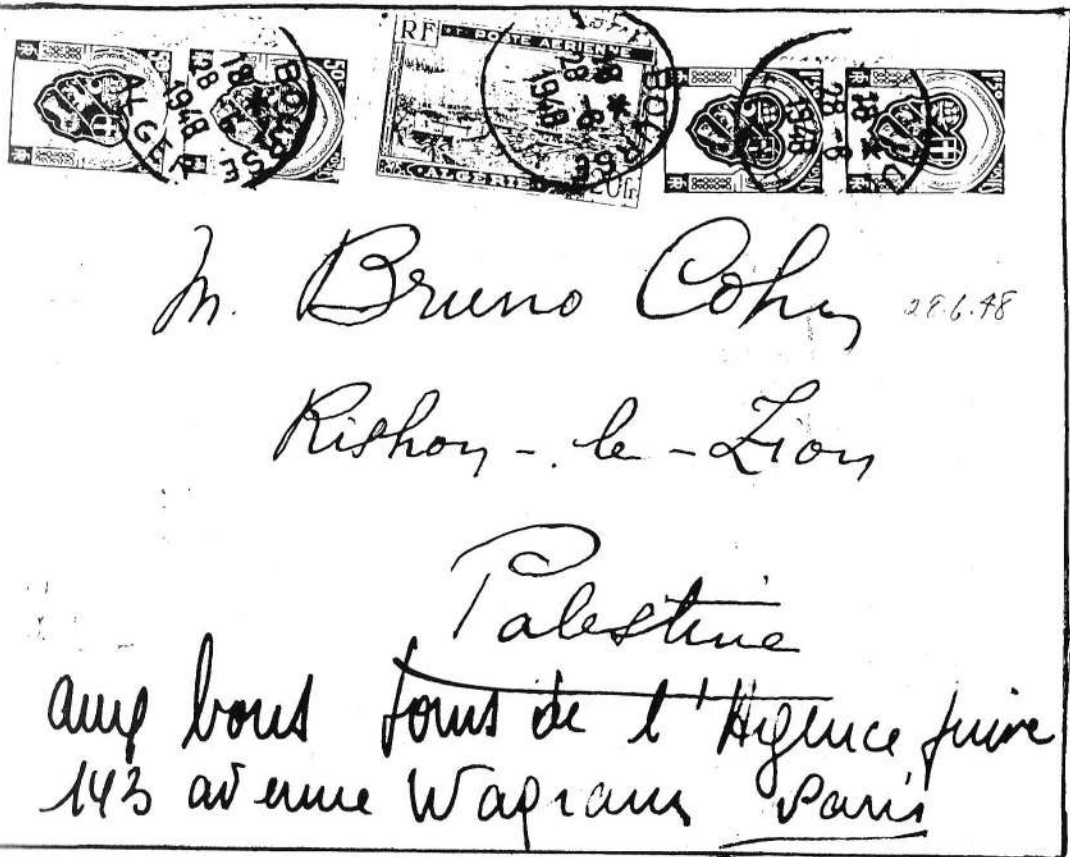 RF POSTE AERIENNE
ALGERIE 20fr
BOURSE ALGER
18 * 28 -6 1948
18 * 28 -6 1948
18 * 28 -6 1948
M. Bruno Cohen
28.6.48
Rishon-le-Zion
Palestine
aux bons soins de l'Agence Juive
143 avenue Wagram Paris